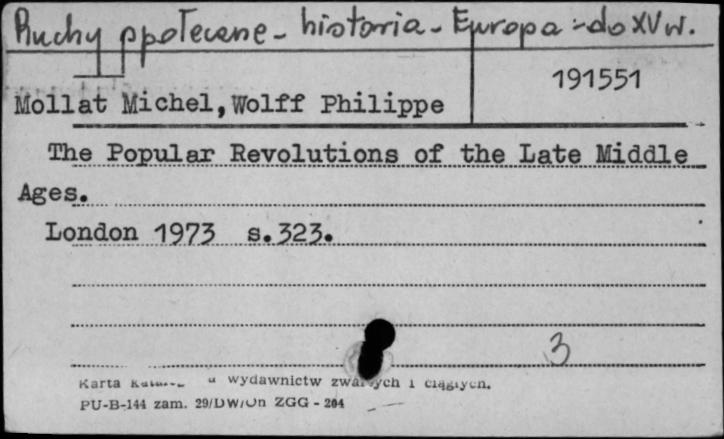 Ruchy społeczne - historia - Europa - do XV w.
191551
Mollat Michel, Wolff Philippe
The Popular Revolutions of the Late Middle
Ages.
London 1973 s.323.
3
Karta wydawnictw zwartych i ciągłych.
PU-B-144 zam. 29/DW/Un ZGG - 204